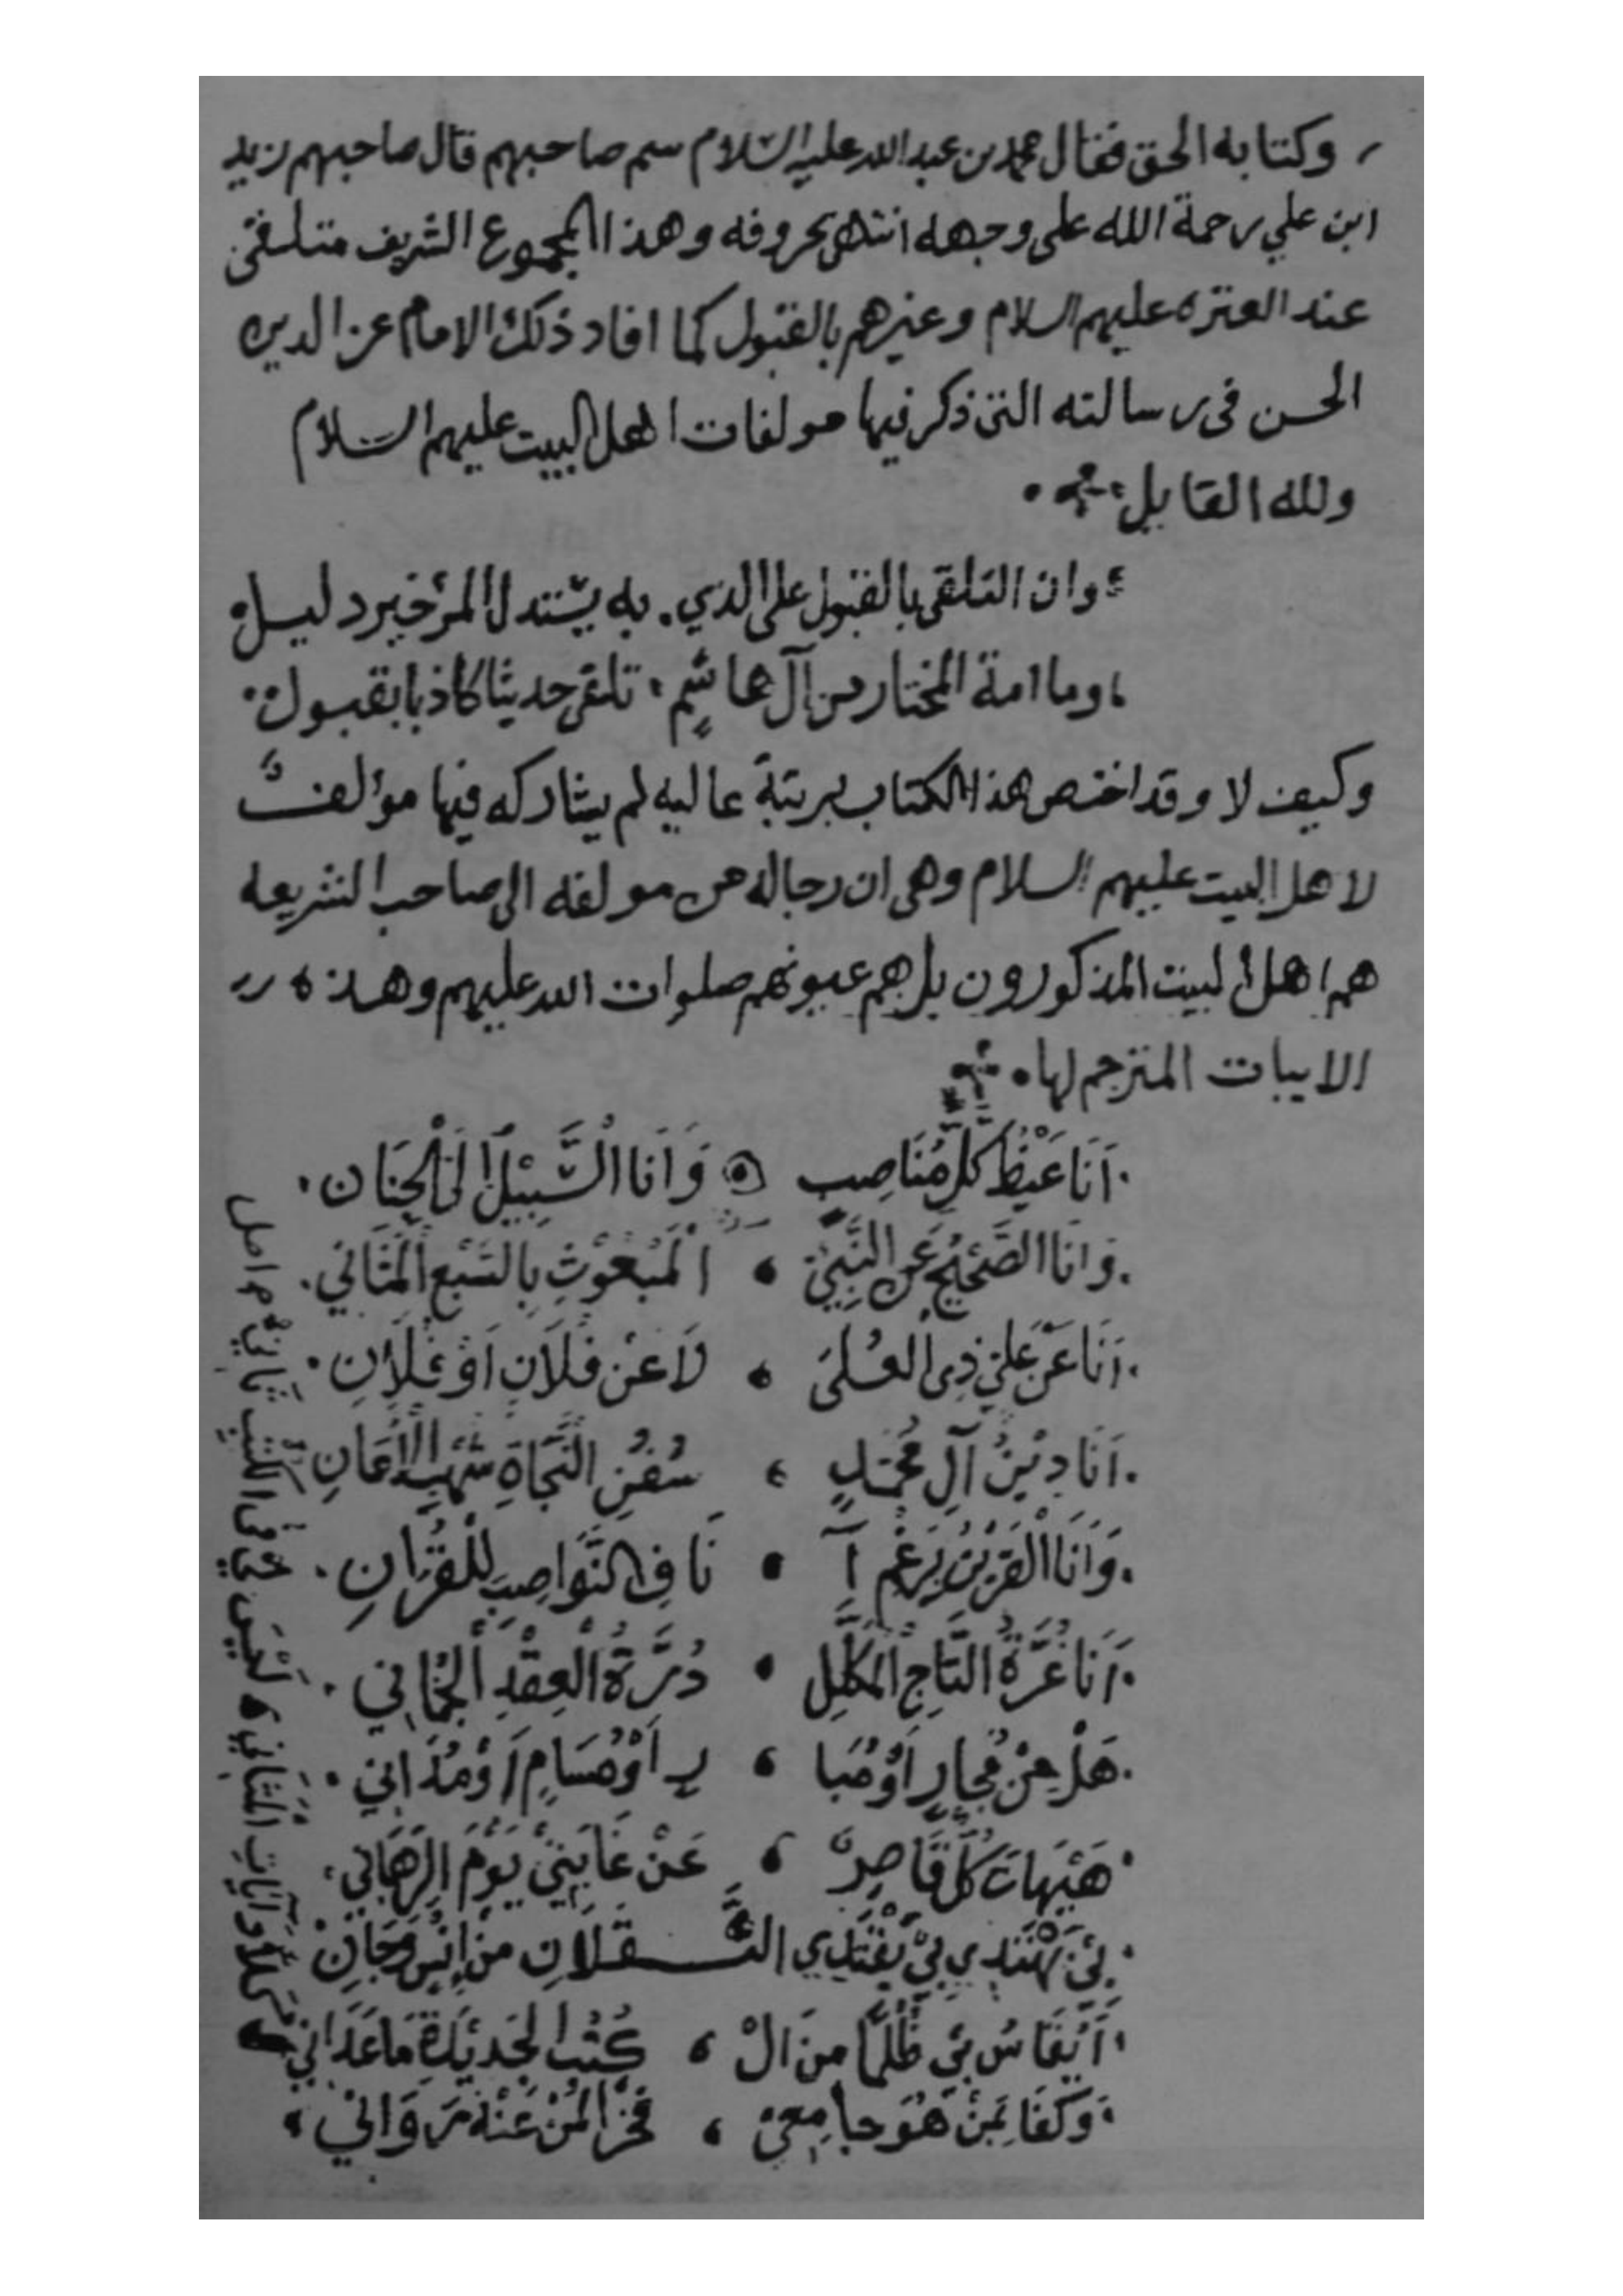 وكتابه الحق فقال محمد بن عبد الله عليه السلام سم صاحبهم قال صاحبهم زيد
ابن علي رحمة الله على وجهه انتهى بحروفه وهذا المجموع الشريف متلقى
عند العتره عليهم السلام وغيرهم بالقبول كما افاد ذلك الامام عز الدين
الحسن في رسالته التي ذكر فيها مولفات اهل البيت عليهم السلام
ولله القايل
وان التلقي بالقبول على الذي . به يستدل المرء خير دليل
وما امة المختار من آل هاشم . تلقى حديثا كاذبا بقبول
وكيف لا وقد اختص هذا الكتاب بمرتبة عاليه لم يشاركه فيها مؤلف
لاهل البيت عليهم السلام وهي ان رجاله من مولفه الى صاحب الشريعه
هم اهل البيت المذكورون بل هم عيونهم صلوات الله عليهم وهذه
الابيات المترجم لها
اَنَا غَيْظُ كُلِّ مُنَاصِبٍ وَاَنَا السَّبِيْلُ اِلَى الْجِنَان
وَاَنَا الصَّحِيْحُ عَنِ النَّبِيْ الْمَبْعُوْثِ بِالسَّبْعِ الْمَثَانِي
اَنَا عَنْ عَلِيْ ذِي الْعُلَى لَا عَنْ فُلَانِ اَوْ فُلَانِ
اَنَا دِيْنُ آلِ مُحَمَّدٍ سُفُنِ النَّجَاةِ شُهُبِ الْاَمَانِ
وَاَنَا الْقَرِيْنُ بِرَغْمِ آ نَافِ النَّوَاصِبِ لِلْقُرَانِ
اَنَا غُرَّةُ التَّاجِ الْمُكَلَّلِ دُرَّةُ الْعِقْدِ الْجُمَانِي
هَلْ مِنْ مُجَارٍ اَوْ مُبَا رٍ اَوْ مُسَامٍ اَوْ مُدَانِي
هَيْهَاتَ كُلٌّ قَاصِرٌ عَنْ غَايَتِيْ يَوْمَ الرِّهَانِ
بِيْ يَهْتَدِي بِيْ يَقْتَدِي الثَّقَلَانِ مِنْ اِنْسٍ وَجَانْ
اَيُقَاسُ بِيْ ظُلْمًا مِنَ الْ كُتُبِ الْجَدِيْدَةِ مَا عَدَانِي
وَكَفَا بِمَنْ هُوَ جَامِعِيْ فَخْرًا لِمَنْ عَنْهُ رَوَانِي